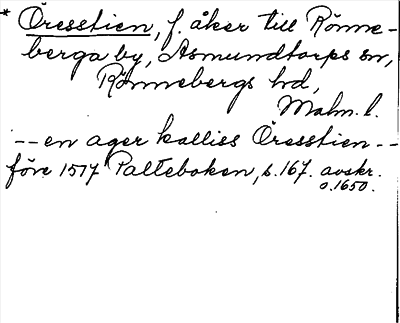 * Öresstien, f. åker till Rönne-
berga by, Asmundtorps sn,
Rönnebergs hd,
Malm. l.
-- en ager kalliss Öresstien --
före 1577 Palteboken, s. 167. avskr.
o. 1650.